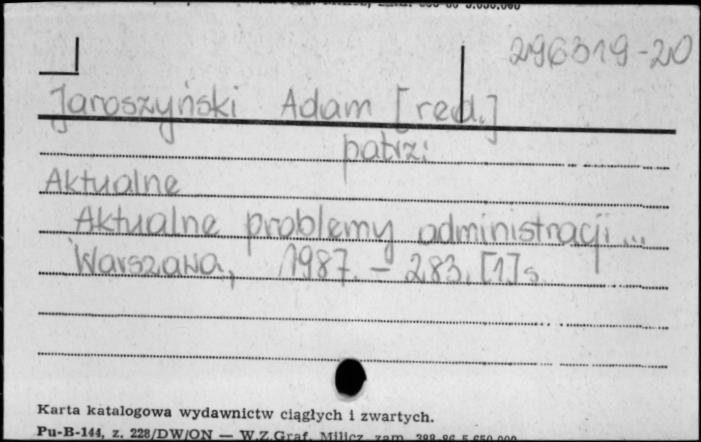 296319-20
Jaroszyński Adam [red.]
patrz:
Aktualne
Aktualne problemy administracji...
Warszawa, 1987. – 283, [1] s.
Karta katalogowa wydawnictw ciągłych i zwartych.
Pu-B-144, z. 228/DW/ON — W.Z.Graf. Milicz, zam. 388-86 5.650.000